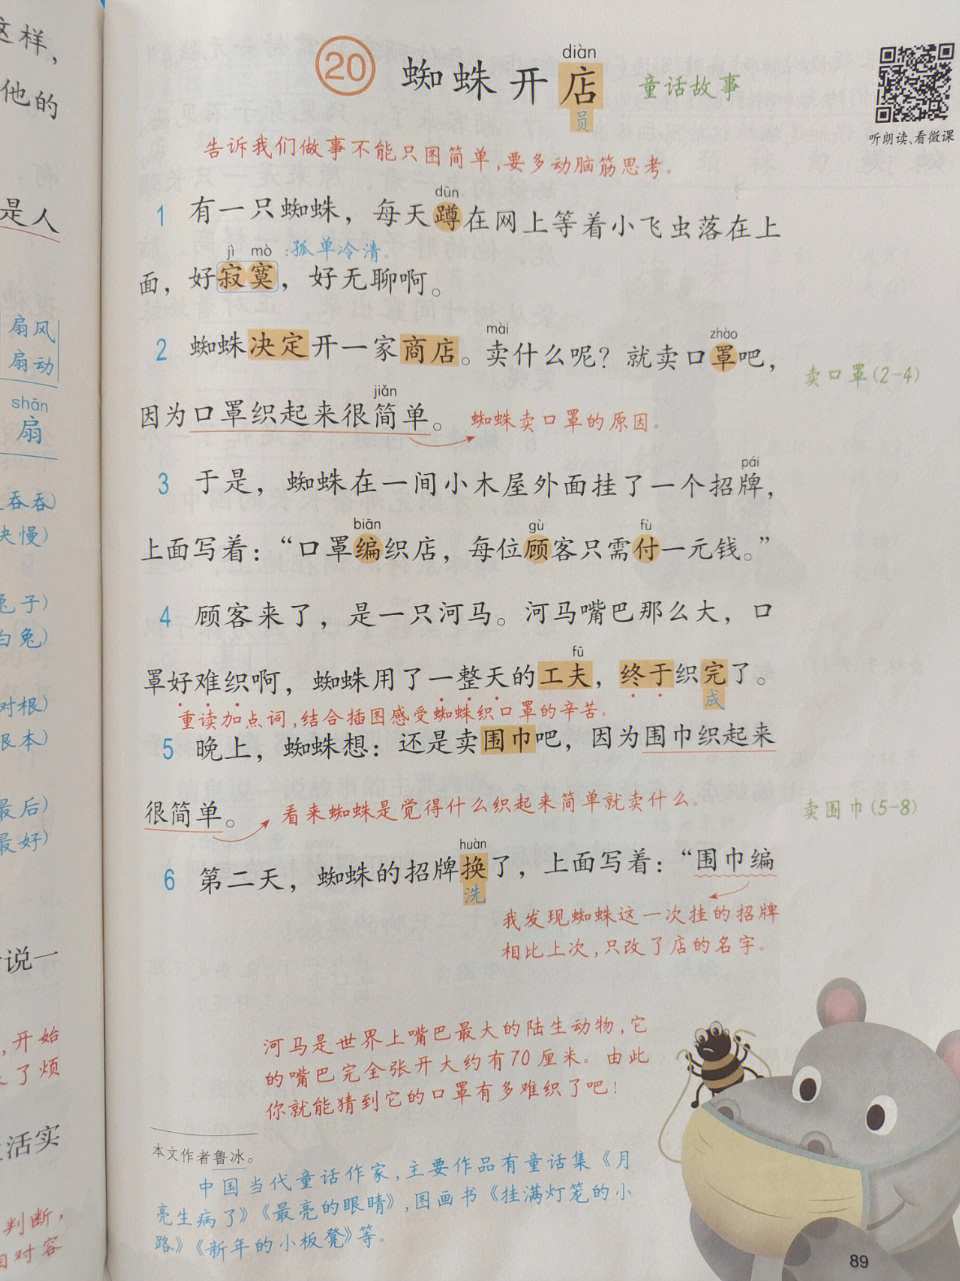 这样,
他的
是人
扇风
扇动
shān
扇
吞吞)
快慢)
兔子)
白兔)
对根)
根本)
最后)
最好)
说一
,开始
了烦
活实
判断,
相对容
diàn
20 蜘蛛开店 童话故事
员
听朗读、看微课
告诉我们做事不能只图简单,要多动脑筋思考。
dūn
1 有一只蜘蛛，每天蹲在网上等着小飞虫落在上
jì mò :孤单冷清。
面，好寂寞，好无聊啊。
mài zhào
2 蜘蛛决定开一家商店。卖什么呢？就卖口罩吧，
卖口罩(2-4)
jiǎn
因为口罩织起来很简单。 蜘蛛卖口罩的原因。
pái
3 于是，蜘蛛在一间小木屋外面挂了一个招牌，
biān gù fù
上面写着：“口罩编织店，每位顾客只需付一元钱。”
4 顾客来了，是一只河马。河马嘴巴那么大，口
fū
罩好难织啊，蜘蛛用了一整天的工夫，终于织完了。
成
重读加点词,结合插图感受蜘蛛织口罩的辛苦。
5 晚上，蜘蛛想：还是卖围巾吧，因为围巾织起来
很简单。 看来蜘蛛是觉得什么织起来简单就卖什么。
卖围巾(5-8)
huàn
6 第二天，蜘蛛的招牌换了，上面写着：“围巾编
洗
我发现蜘蛛这一次挂的招牌
相比上次,只改了店的名字。
河马是世界上嘴巴最大的陆生动物,它
的嘴巴完全张开大约有70厘米。由此
你就能猜到它的口罩有多难织了吧!
本文作者鲁冰。
中国当代童话作家,主要作品有童话集《月
亮生病了》《最亮的眼睛》,图画书《挂满灯笼的小
路》《新年的小板凳》等。
89